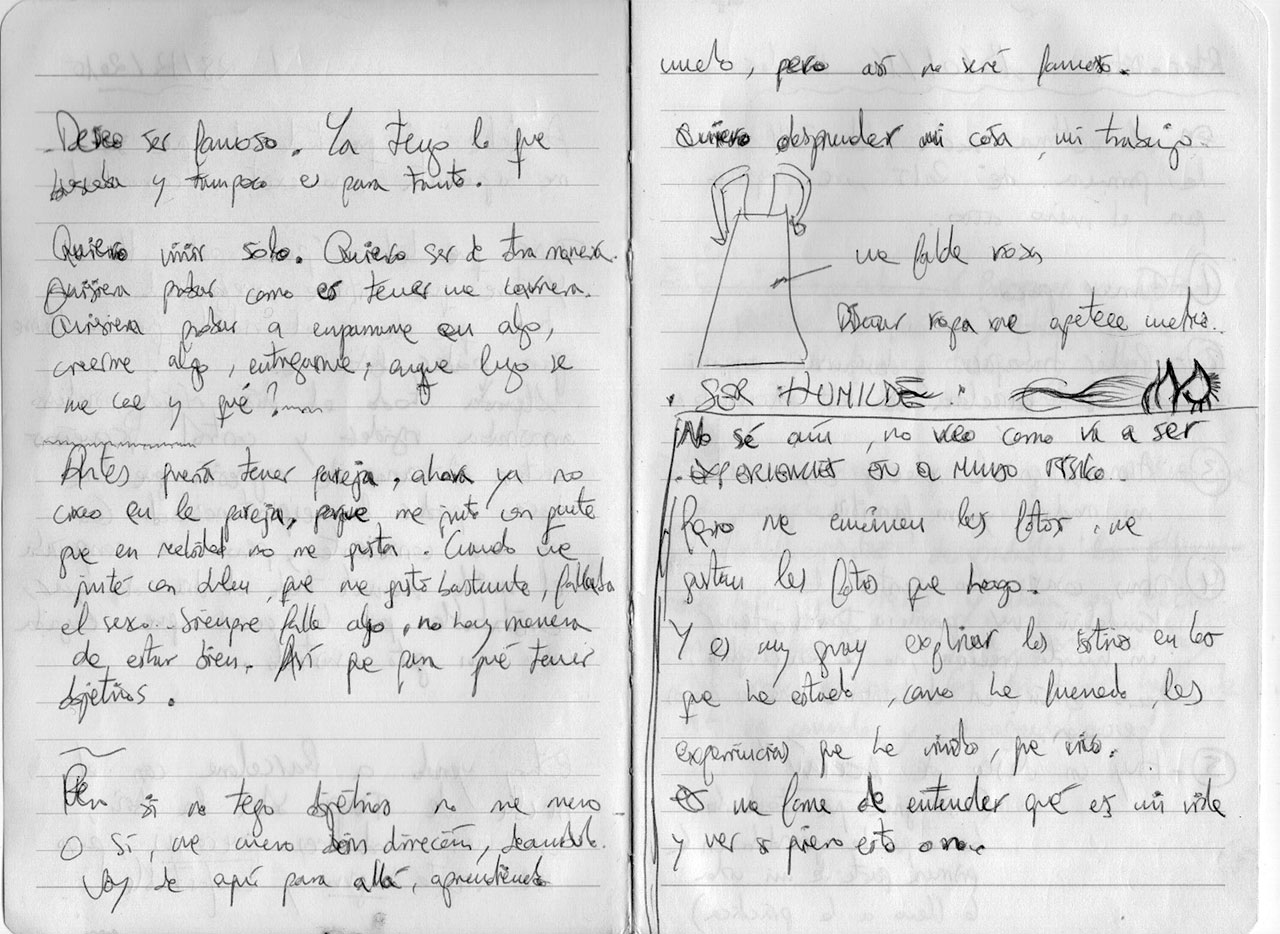 Deseo ser famoso. Ya tengo lo que
buscaba y tampoco es para tanto.
Quiero vivir solo. Quiero ser de otra manera.
Quisiera probar como es tener una carrera.
Quisiera probar a empaparme en algo,
creerme algo, entregarme, aunque luego se
me cae y qué?....
Antes quería tener pareja, ahora ya no
creo en la pareja, porque me junto con gente
que en realidad no me gusta. Cuando me
junté con, que me gustó bastante, fallaba
el sexo... Siempre falla algo, no hay manera
de estar bien. Así que para qué tener
objetivos.
Pero si no tego objetivos no me muevo
O sí, me muevo sin dirección, deambulo.
Voy de aquí para allá, aprendiendo
mucho, pero así no seré famoso.
Quiero desprender mi casa, mi trabajo.
una falda rosa
ropa me apetece mucho..
SER HUMILDE."
No sé aún, no veo como va a ser
EXPERIENCIES EN EL MUNDO FÍSICO..
Pero me las fotos, me
gustan las fotos que hago.
Y es muy guay explicar los sitios en los
que he estado, como he, las
experiencias que he vivido, que vivo.
Es una forma de entender qué es mi vida
y ver si quiero esto o no.